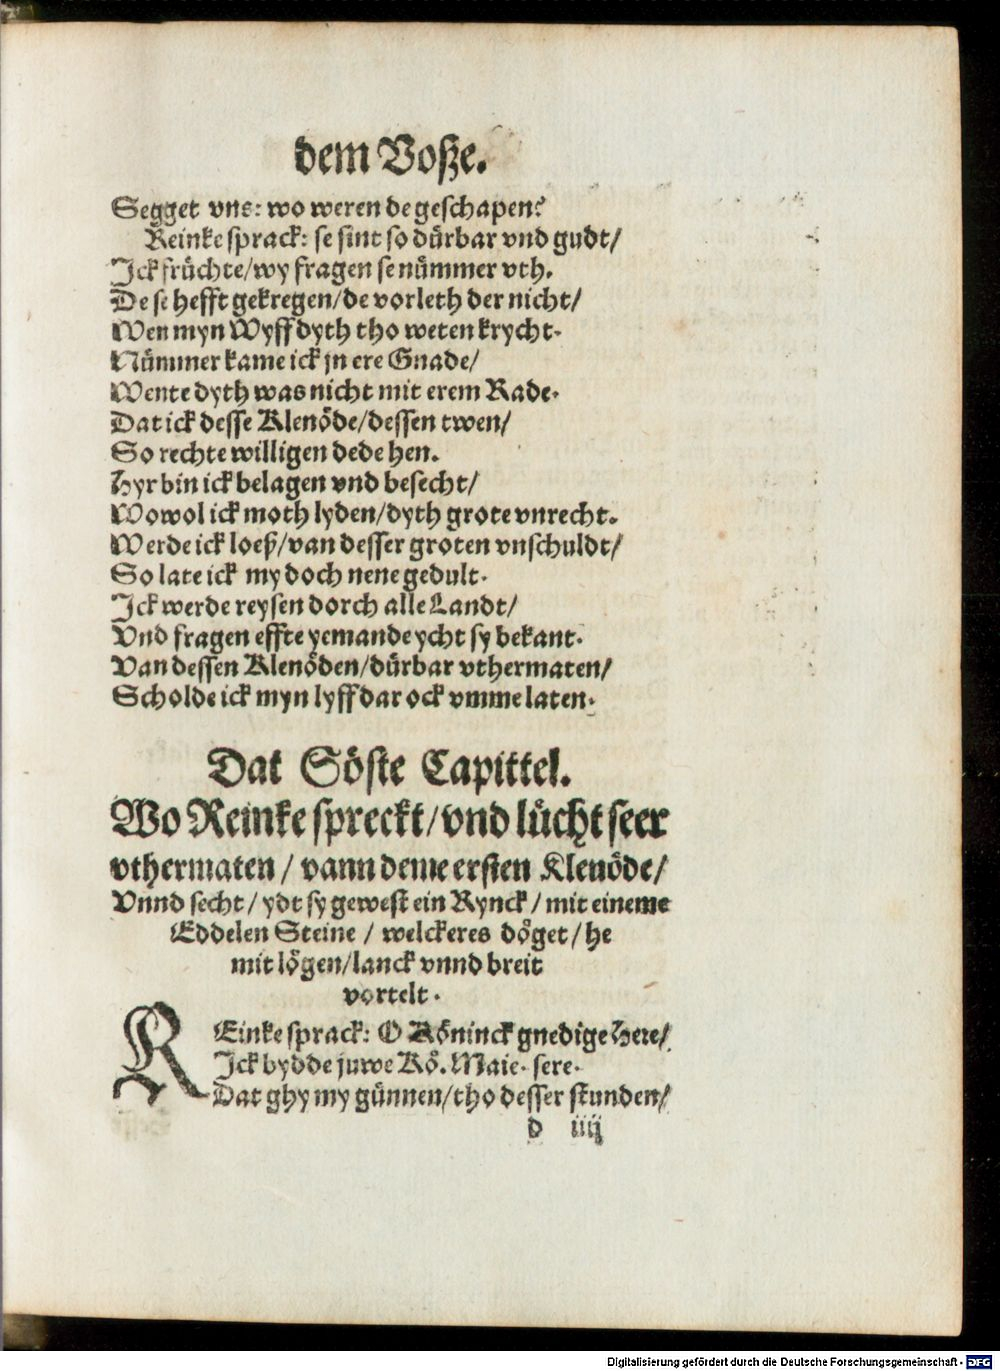 dem Voſze.
Segget vns: wo weren de geſchapen?
Reinke ſprack: ſe ſint ſo důrbar vnd gudt/
Ick früchte/wy fragen ſe nümmer vth.
De ſe hefft gekregen/de vorleth der nicht/
Wen myn Wyff dyth tho weten krycht.
Nümmer kame ick jn ere Gnade/
Wente dyth was nicht mit erem Rade.
Dat ick deſſe Klenöde/deſſen twen/
So rechte willigen dede hen.
Hyr bin ick belagen vnd beſecht/
Wowol ick moth lyden/dyth grote vnrecht.
Werde ick loeß/van deſſer groten vnſchuldt/
So late ick my doch nene gedult.
Ick werde reyſen dorch alle Landt/
Vnd fragen effte yemande ycht ſy bekant.
Van deſſen Klenöden/dürbar vthermaten/
Scholde ick myn lyff dar ock vmme laten.
Dat Söſte Capittel.
Wo Reinke ſpreckt/vnd lücht ſeer
vthermaten/ vann deme erſten Klenöde/
Vnnd ſecht/ ydt ſy geweſt ein Rynck/ mit eineme
Eddelen Steine/ welckeres döget/he
mit lögen/lanck vnnd breit
vortelt.
REinke ſprack: O Köninck gnedige Here/
Ick bydde juwe Kö. Maie. ſere.
Dat ghy my günnen/tho deſſer ſtunden/
d iiij
Digitalisierung gefördert durch die Deutsche Forschungsgemeinschaft - DFG